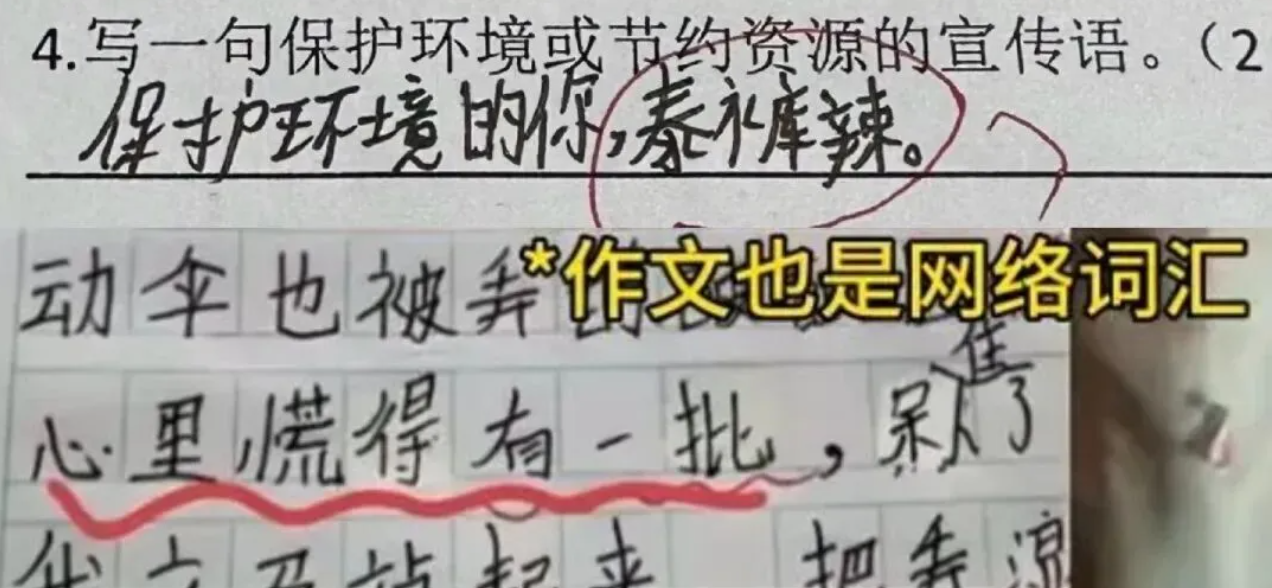 4.写一句保护环境或节约资源的宣传语。(2
保护环境的你,泰裤辣。
*作文也是网络词汇
动伞也被弄
心里慌得有一批,呆隹人了
起来 把弄